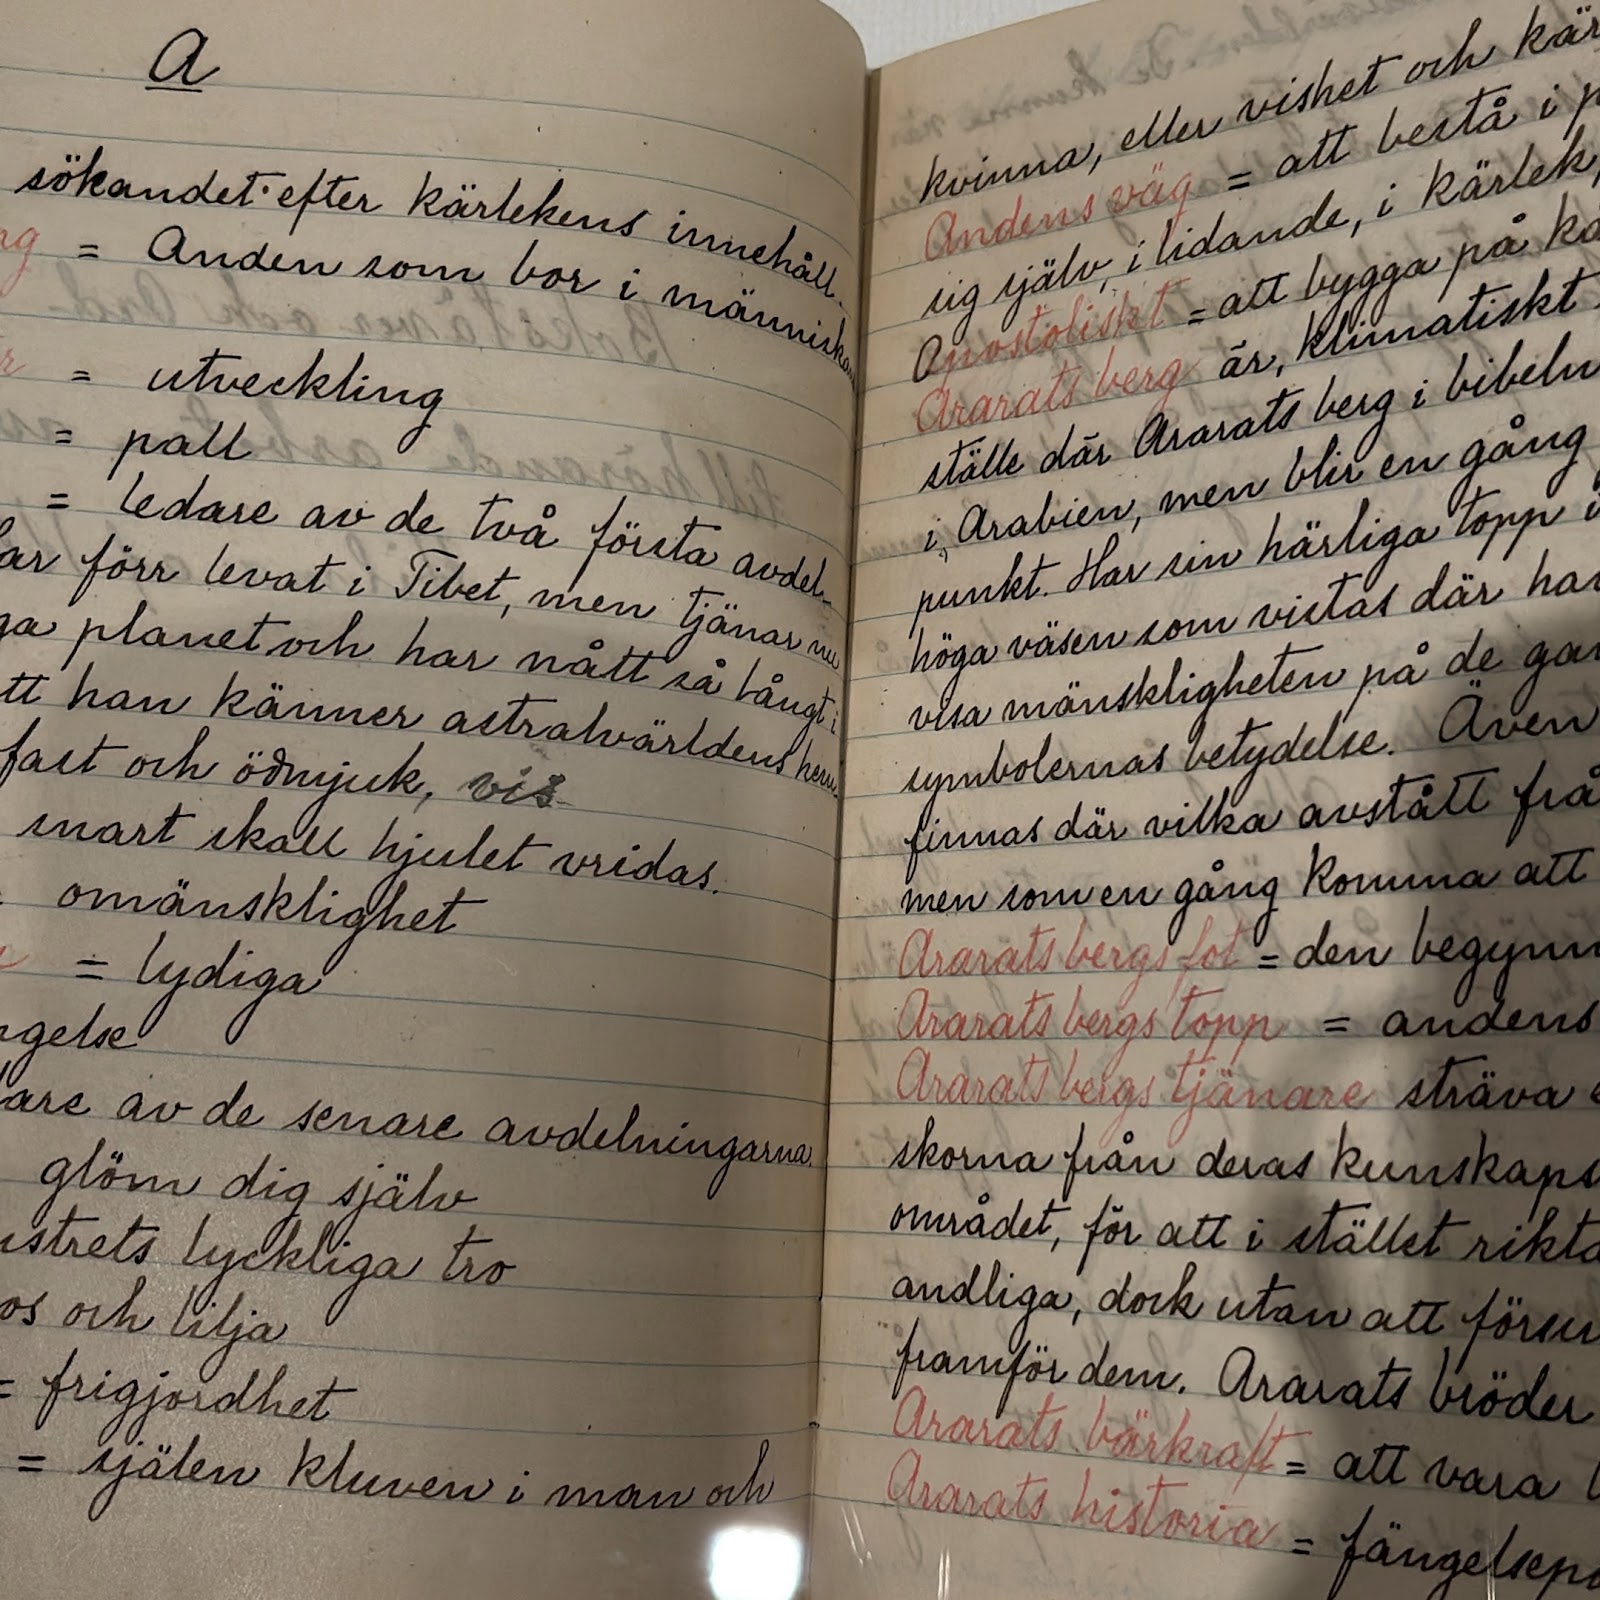 A
sökandet efter kärlekens innehåll.
= Anden som bor i människan
= utveckling
= pall
= ledare av de två första avdel-
ar förr levat i Tibet, men tjänar nu
ga planet och har nått så långt i
tt han känner astralvärldens hem.
fast och ödmjuk, vis
snart skall hjulet vridas.
omänsklighet
= lydiga
ngelse
are av de senare avdelningarna.
glöm dig själv
ustrets lyckliga tro
os och lilja
= frigjordhet
= själen kluven i man och
kvinna, eller vishet och kär
Andens väg = att bestå i p
sig själv, i lidande, i kärlek,
Apostoliskt = att bygga på kä
Ararats berg är, klimatiskt
ställe där Ararats berg i bibeln
i Arabien, men blir en gång
punkt. Har sin härliga topp i
höga väsen som vistas där har
visa mänskligheten på de gam
symbolernas betydelse. Även
finnas där vilka avstått frå
men som en gång komma att
Ararats bergs fot = den begynn
Ararats bergs topp = andens
Ararats bergs tjänare sträva
skorna från deras kunskaps
området, för att i stället rikta
andliga, dock utan att försu
framför dem. Ararats bröder
Ararats bärkraft = att vara
Ararats historia = fängelsep